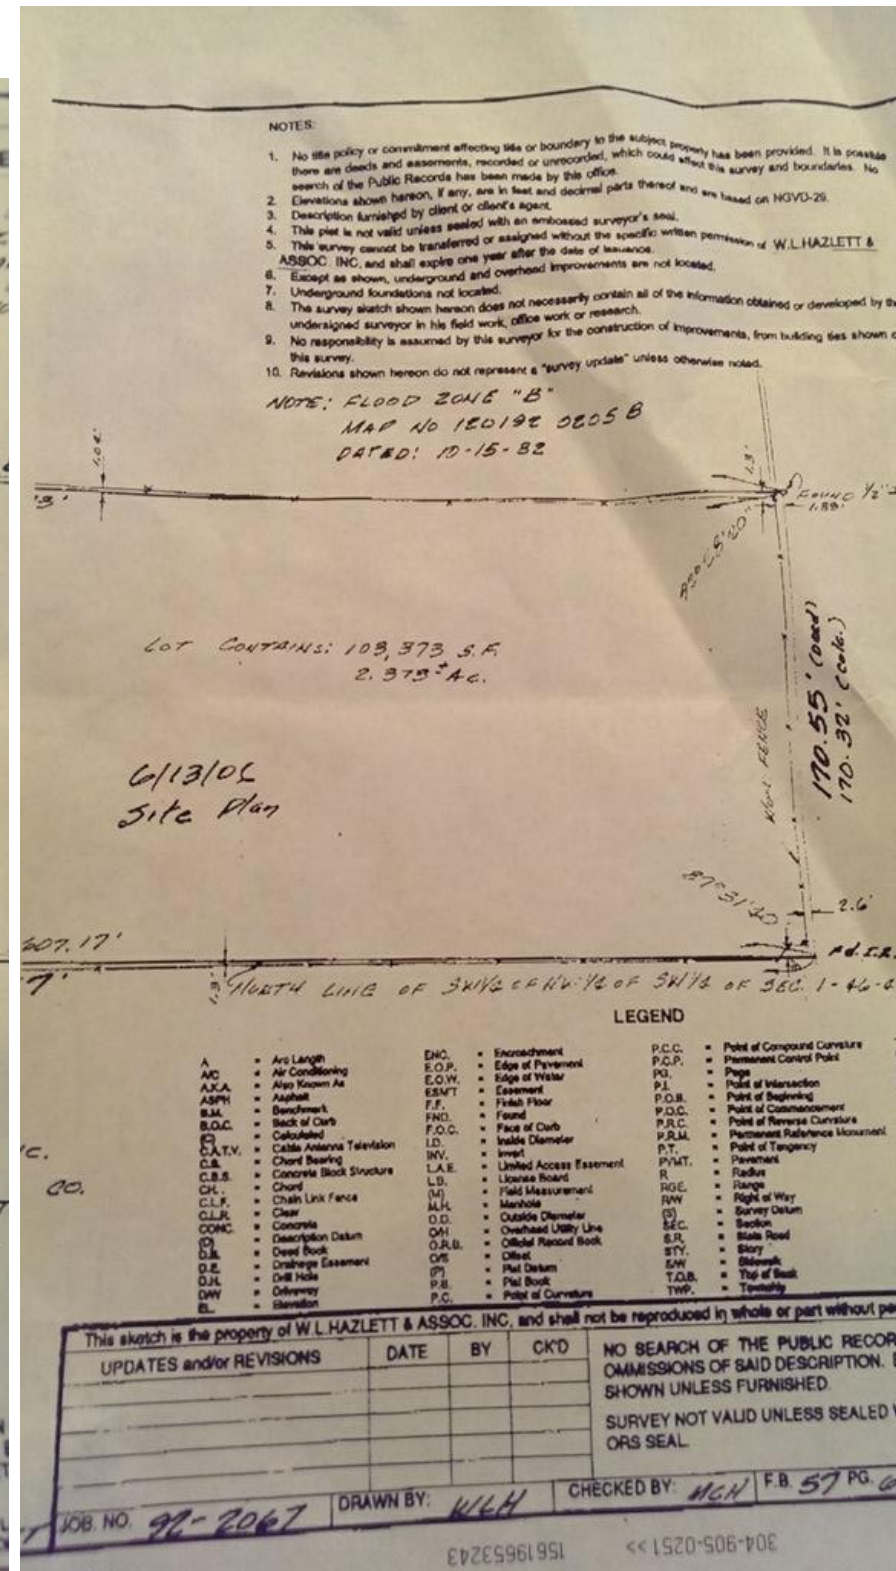 NOTES:
1. No title policy or commitment affecting title or boundary to the subject property has been provided. It is possible
there are deeds and easements, recorded or unrecorded, which could affect this survey and boundaries. No
search of the Public Records has been made by this office.
2. Elevations shown hereon, if any, are in feet and decimal parts thereof and are based on NGVD-29.
3. Description furnished by client or client's agent.
4. This plat is not valid unless sealed with an embossed surveyor's seal.
5. This survey cannot be transferred or assigned without the specific written permission of W.L.HAZLETT &
ASSOC. INC, and shall expire one year after the date of issuance.
6. Except as shown, underground and overhead improvements are not located.
7. Underground foundations not located.
8. The survey sketch shown hereon does not necessarily contain all of the information obtained or developed by th
undersigned surveyor in his field work, office work or research.
9. No responsibility is assumed by this surveyor for the construction of improvements, from building ties shown o
this survey.
10. Revisions shown hereon do not represent a "survey update" unless otherwise noted.
NOTE: FLOOD ZONE "B"
MAP NO 120192 0205 B
DATED: 10-15-82
1.3'
FOUND 1/2"
1.88'
LOT CONTAINS: 103,373 S.F.
2.373± Ac.
170.55' (Deed)
170.32' (calc.)
FENCE
6/13/06
Site Plan
87°31'40
2.6'
607.17'
7'
1.3'
Fd. I.R.
NORTH LINE OF SW1/4 OF NW 1/4 OF SW1/4 OF SEC. 1-46-4
LEGEND
A = Arc Length
A/C = Air Conditioning
A.K.A. = Also Known As
ASPH = Asphalt
B.M. = Benchmark
B.O.C. = Back of Curb
(C) = Calculated
C.A.T.V. = Cable Antenna Television
C.B. = Chord Bearing
C.B.S. = Concrete Block Structure
CH. = Chord
C.L.F. = Chain Link Fence
C.L.R. = Clear
CONC. = Concrete
(D) = Description Datum
D.B. = Deed Book
D.E. = Drainage Easement
D.H. = Drill Hole
D/W = Driveway
EL. = Elevation
ENC. = Encroachment
E.O.P. = Edge of Pavement
E.O.W. = Edge of Water
ESM'T = Easement
F.F. = Finish Floor
FND. = Found
F.O.C. = Face of Curb
I.D. = Inside Diameter
INV. = Invert
L.A.E. = Limited Access Easement
L.B. = License Board
(M) = Field Measurement
M.H. = Manhole
O.D. = Outside Diameter
O/H = Overhead Utility Line
O.R.B. = Official Record Book
O/S = Offset
(P) = Plat Datum
P.B. = Plat Book
P.C. = Point of Curvature
P.C.C. = Point of Compound Curvature
P.C.P. = Permanent Control Point
PG. = Page
P.I. = Point of Intersection
P.O.B. = Point of Beginning
P.O.C. = Point of Commencement
P.R.C. = Point of Reverse Curvature
P.R.M. = Permanent Reference Monument
P.T. = Point of Tangency
PVMT. = Pavement
R = Radius
RGE. = Range
R/W = Right of Way
(S) = Survey Datum
SEC. = Section
S.R. = State Road
STY. = Story
S/W = Sidewalk
T.O.B. = Top of Bank
TWP. = Township
C.
CO.
This sketch is the property of W.L.HAZLETT & ASSOC. INC, and shall not be reproduced in whole or part without pe
UPDATES and/or REVISIONS DATE BY CK'D
NO SEARCH OF THE PUBLIC RECOR
OMMISSIONS OF SAID DESCRIPTION.
SHOWN UNLESS FURNISHED.
SURVEY NOT VALID UNLESS SEALED
ORS SEAL
JOB. NO. 92-2067 DRAWN BY: WLH CHECKED BY: F.B. 57 PG. 6
304-905-0251 >> 15619653243